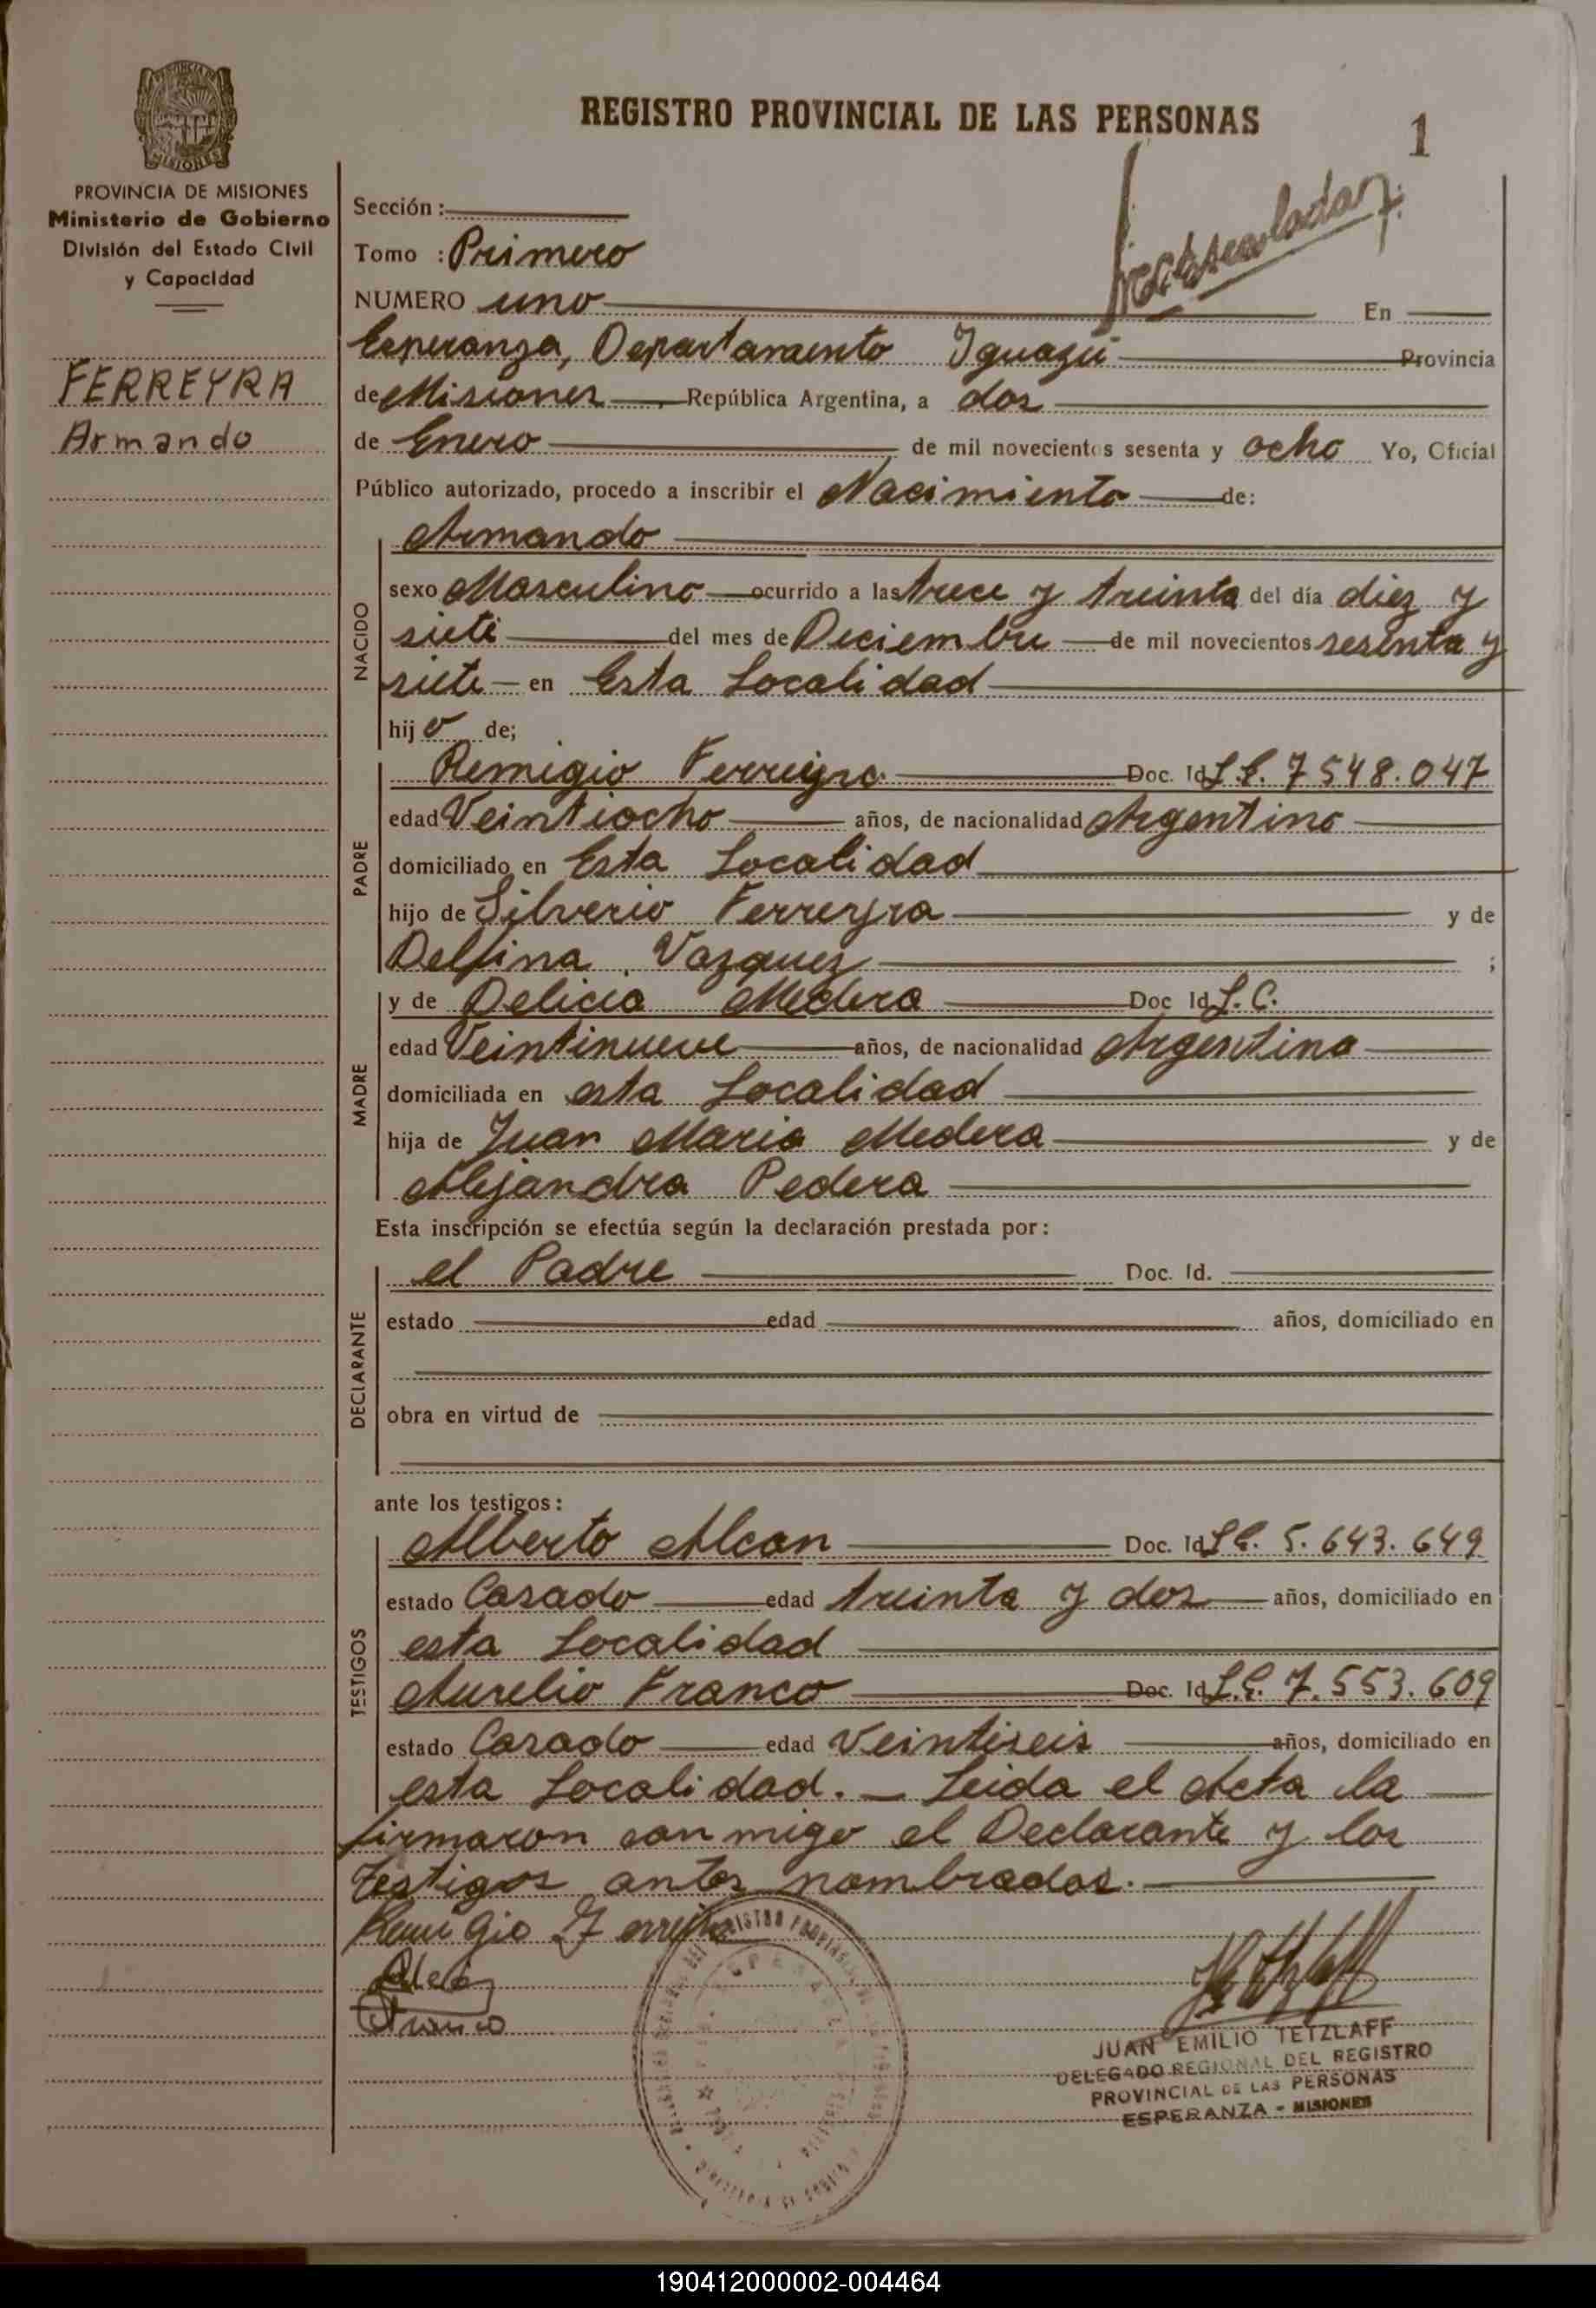 REGISTRO PROVINCIAL DE LAS PERSONAS
1
PROVINCIA DE MISIONES
Ministerio de Gobierno
División del Estado Civil
y Capacidad
FERREYRA
Armando
Sección :
Tomo : Primero
NUMERO uno En
Esperanza, Departamento Iguazú Provincia
de Misiones República Argentina, a dos
de Enero de mil novecientos sesenta y ocho Yo, Oficial
Público autorizado, procedo a inscribir el Nacimiento de:
NACIDO
Armando
sexo Masculino ocurrido a las trece y treinta del día diez y
siete del mes de Diciembre de mil novecientos sesenta y
siete en Esta Localidad
hijo de;
PADRE
Remigio Ferreyra Doc. Id L.E. 7548.047
edad Veintiocho años, de nacionalidad Argentino
domiciliado en Esta Localidad
hijo de Silverio Ferreyra y de
Delfina Vazquez ;
MADRE
y de Delicia Medera Doc Id L.C.
edad Veintinueve años, de nacionalidad Argentina
domiciliada en esta Localidad
hija de Juan Maria Medera y de
Alejandra Pedera
Esta inscripción se efectúa según la declaración prestada por:
DECLARANTE
el Padre Doc. Id.
estado edad años, domiciliado en
obra en virtud de
ante los testigos:
TESTIGOS
Alberto Alcan Doc. Id L.E. 5.643.649
estado Casado edad treinta y dos años, domiciliado en
esta Localidad
Aurelio Franco Doc. Id L.E. 7.553.609
estado Casado edad Veintiseis años, domiciliado en
esta Localidad. - Leida el Acta la
firmaron conmigo el Declarante y los
testigos antes nombrados.
Franco
JUAN EMILIO TETZLAFF
DELEGADO REGIONAL DEL REGISTRO
PROVINCIAL DE LAS PERSONAS
ESPERANZA - MISIONES
190412000002-004464